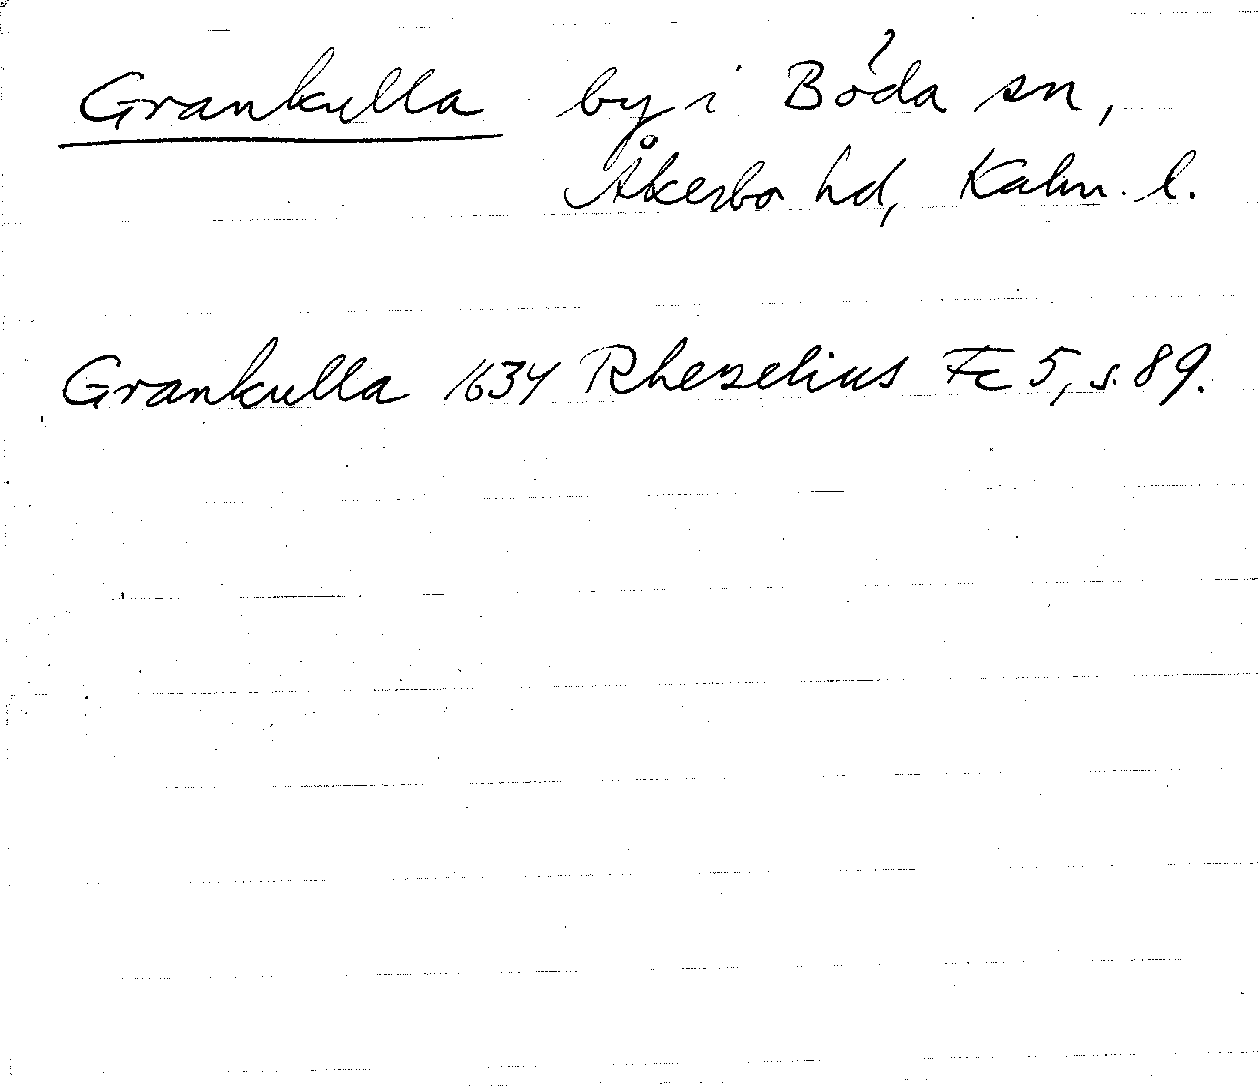 Grankulla by i Böda sn,
Åkerbo hd, Kalm. l.
Grankulla 1634 Rhezelius Fc 5, s. 89.